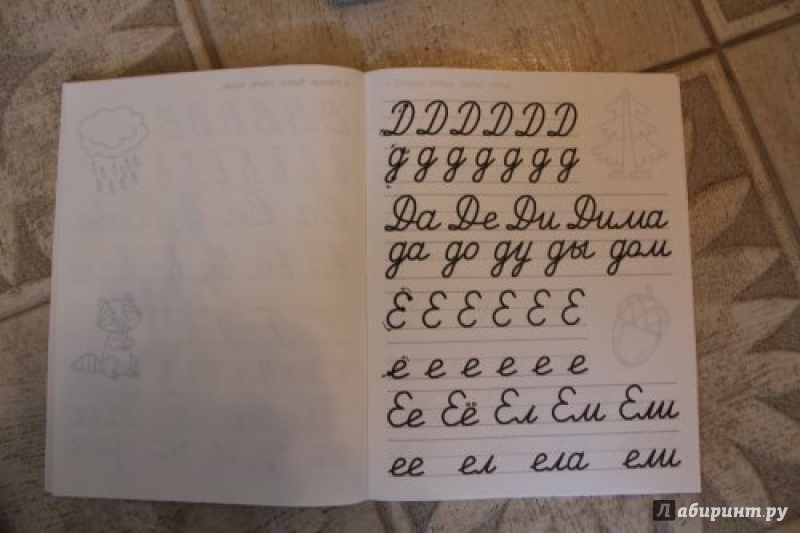 Д Д Д Д Д Д
д д д д д д д
Да Де Ди Дима
да до ду ды дом
Е Е Е Е Е Е
е е е е е е
Ее Её Ел Ем Ели
ее ел ела ели
Лабиринт.ру